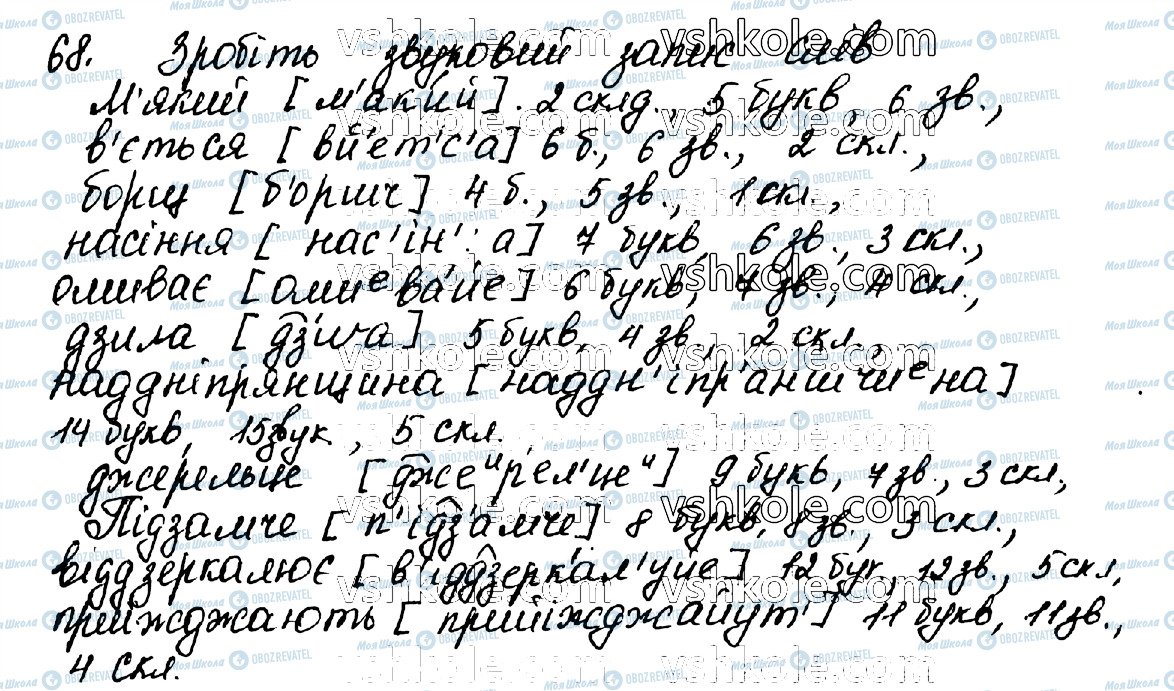 68. Зробіть звуковий запис слів
М'який [м'який]. 2 склд., 5 букв, 6 зв.,
в'ється [вйет'с'а] 6 б., 6 зв., 2 скл.,
борщ [боршч] 4 б., 5 зв., 1 скл.,
насіння [нас'ін':а] 7 букв, 6 зв., 3 скл.,
омиває [омиевайе] 6 букв, 7 зв., 4 скл.,
дзила [дзиґа] 5 букв, 4 зв., 2 скл.,
наддніпрянщина [наддн'іпр'аншчиена]
14 букв, 15 звук., 5 скл.
джерельце [джеирел'цеи] 9 букв, 7 зв., 3 скл.,
Підзамче [п'ідзамче] 8 букв, 8 зв., 3 скл.,
віддзеркалює [в'іддзеркал'уйе] 12 бук, 12 зв., 5 скл,
приїжджають [прийіжджайут'] 11 букв, 11 зв.,
4 скл.
vshkole.com
Моя Школа OBOZREVATEL